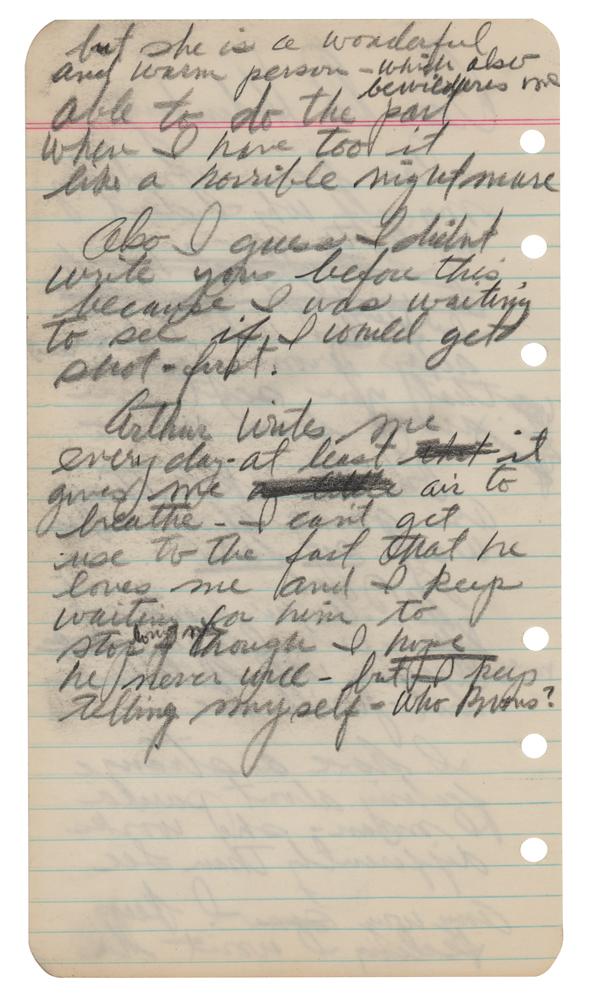 but she is a wonderful
and warm person - which also
bewilders me
able to do the part
when I have too it
like a horrible nightmare
Also I guess I didnt
write you before this,
because I was waiting
to see if I would get
shot-first.
Arthur writes me
every day - at least that it
gives me a little air to
breathe - I can't get
use to the fact that he
loves me and I keep
waiting for him to
stop loving me
though I hope
he never will - but I keep
telling myself - who knows?